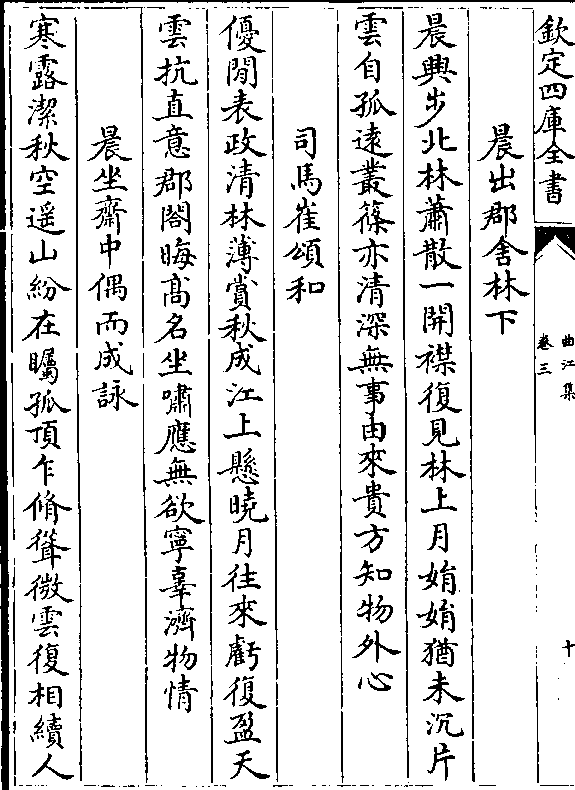 欽定四庫全書
曲江集
卷三
十
晨出郡舍林下
晨興步北林蕭散一開襟復見林上月娟娟猶未沉片
雲自孤遠叢篠亦清深無事由來貴方知物外心
司馬崔頌和
優閒表政清林薄賞秋成江上懸曉月往來虧復盈天
雲抗直意郡閣晦髙名坐嘯應無欲寧辜濟物情
晨坐齋中偶而成詠
寒露潔秋空遥山紛在矚孤頂乍脩聳微雲復相續人